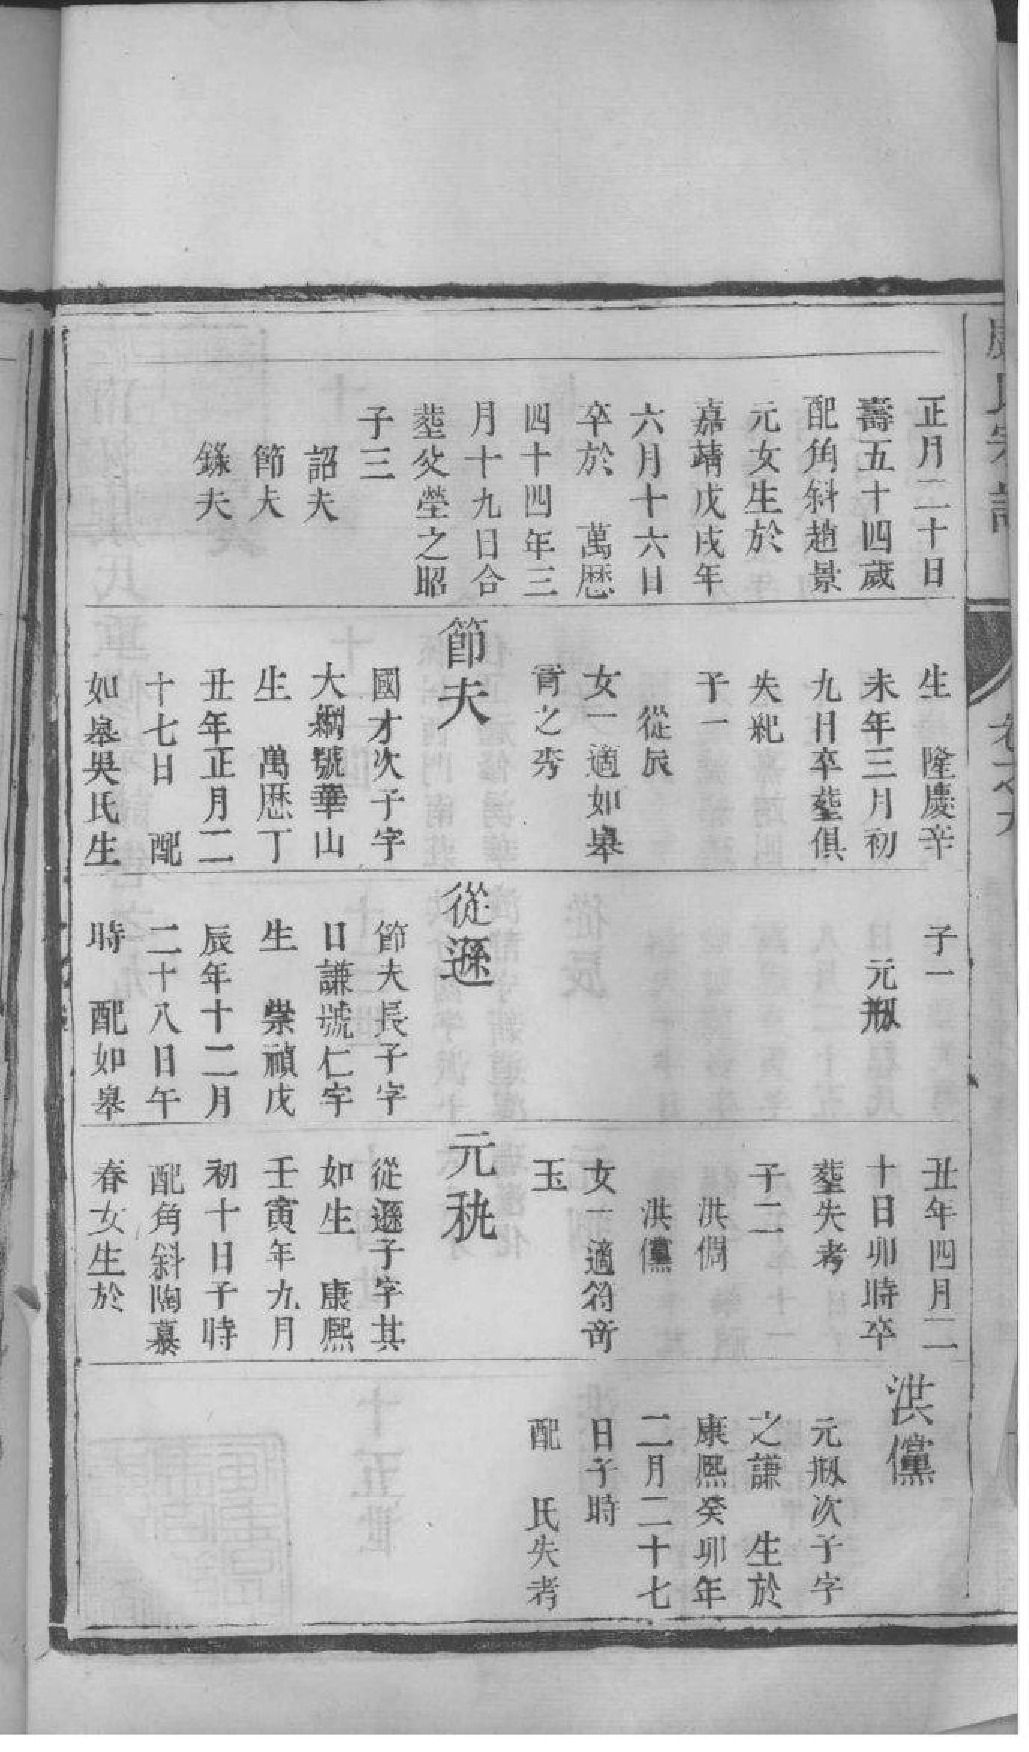 正月二十日
壽五十四歲
配角斜趙景
元女生於
嘉靖戊戌年
六月十六日
卒於　萬歷
四十四年三
月十九日合
塟父塋之昭
子三
詔夫
節夫
錄夫
生　隆慶辛
未年三月初
九日卒塟俱
失紀
子一
從辰
女一適如皋
胥之秀
節夫
國才次子字
大綱號華山
生　萬歷丁
丑年正月二
十七日　配
如皋吳氏生
子一
元瓶
從遜
節夫長子字
日謙號仁宇
生　崇禎戊
辰年十二月
二十八日午
時　配如皋
丑年四月二
十日卯時卒
塟失考
子二
洪倜
洪儻
女一適符奇
玉
元秇
從遜子字其
如生　康熙
壬寅年九月
初十日子時
配角斜陶慕
春女生於
洪儻
元瓶次子字
之謙　生於
康熙癸卯年
二月二十七
日子時
配　氏失考